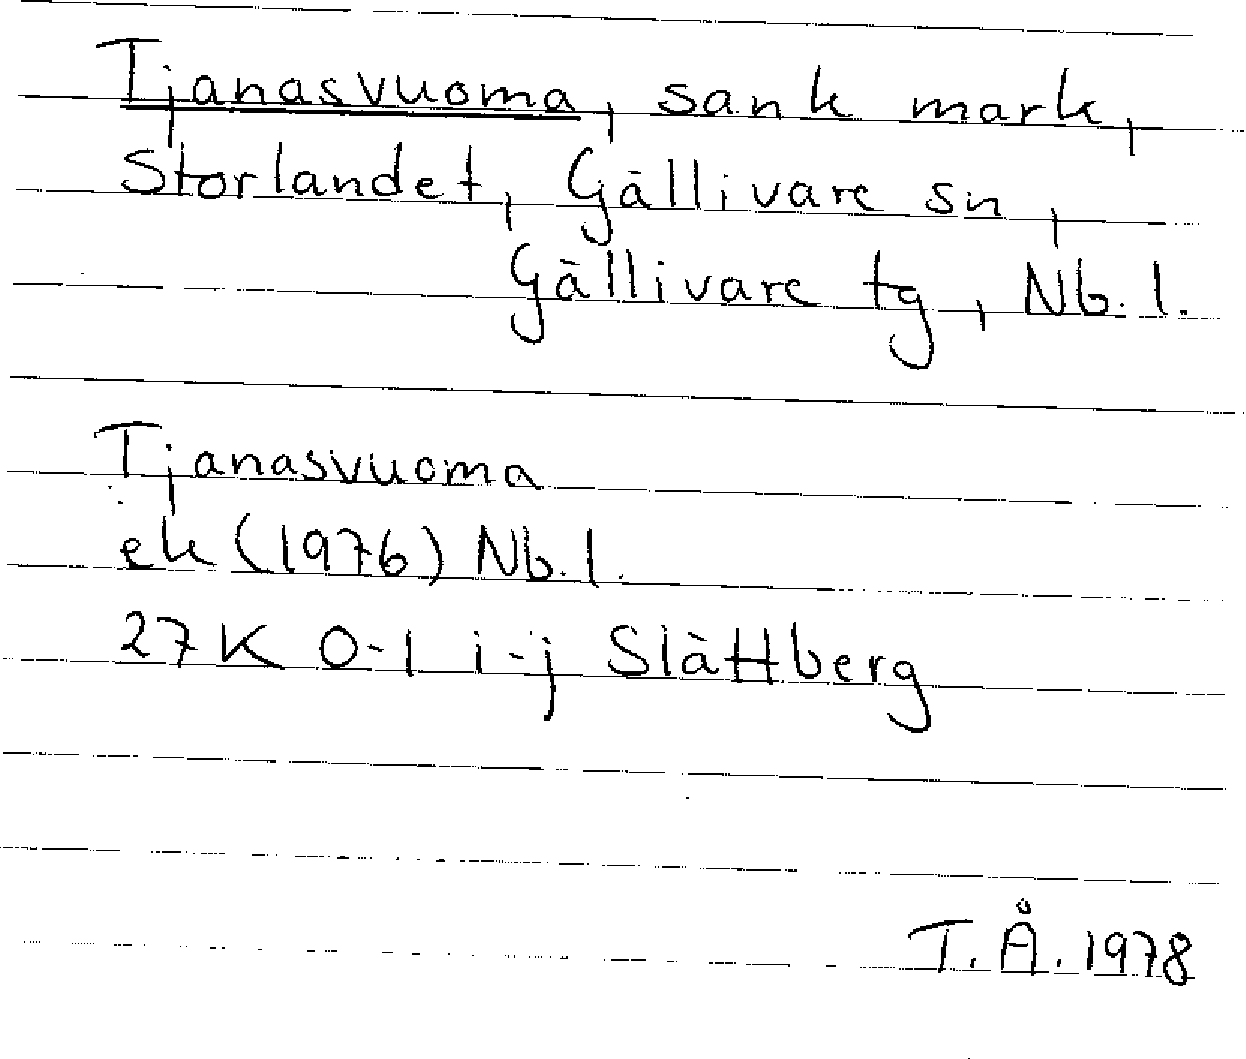 Tjanasvuoma, sank mark,
Storlandet, Gällivare sn,
Gällivare tg, Nb. l.
Tjanasvuoma
ek (1976) Nb. l.
27 K 0-1 i-j Slättberg
T. Å. 1978